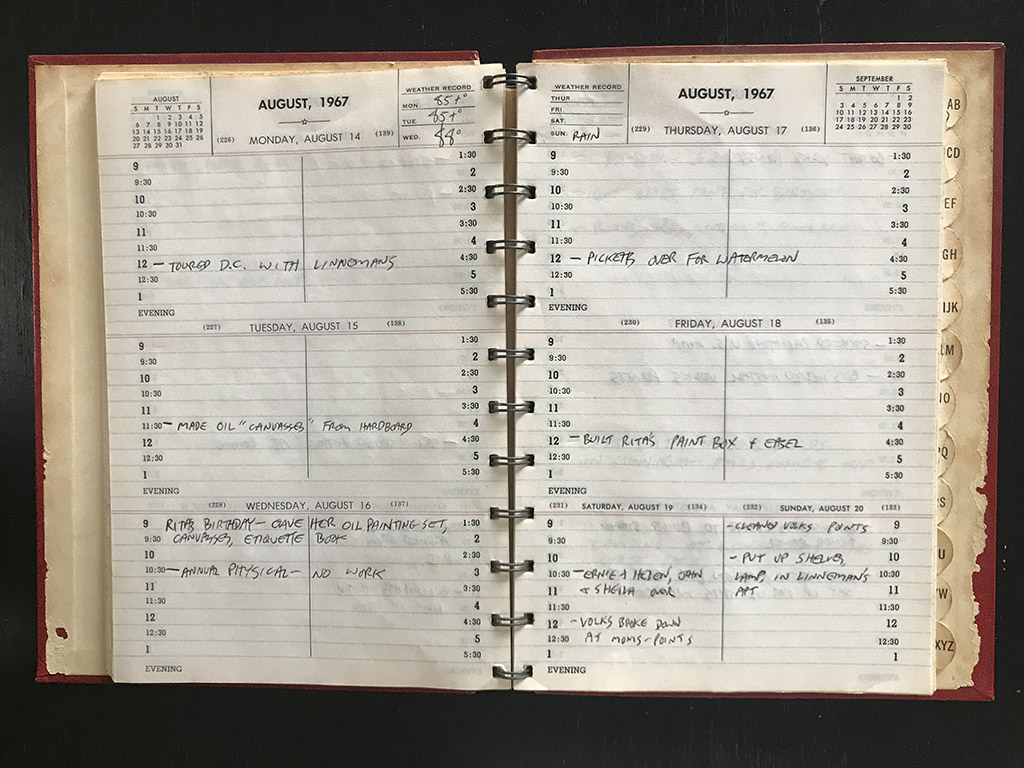 AUGUST
S M T W T F S
1 2 3 4 5
6 7 8 9 10 11 12
13 14 15 16 17 18 19
20 21 22 23 24 25 26
27 28 29 30 31
AUGUST, 1967
WEATHER RECORD
MON. 85+°
TUE. 85+°
WED. 88°
(226) MONDAY, AUGUST 14 (139)
9 1:30
9:30 2
10 2:30
10:30 3
11 3:30
11:30 4
12 – TOURED D.C. WITH LINNEMANS 4:30
12:30 5
1 5:30
EVENING
(227) TUESDAY, AUGUST 15 (138)
9 1:30
9:30 2
10 2:30
10:30 3
11 3:30
11:30 – MADE OIL "CANVASSES" FROM HARDBOARD 4
12 4:30
12:30 5
1 5:30
EVENING
(228) WEDNESDAY, AUGUST 16 (137)
9 RITA'S BIRTHDAY – GAVE HER OIL PAINTING SET, 1:30
9:30 CANVASSES, ETIQUETTE BOOK 2
10 2:30
10:30 – ANNUAL PHYSICAL – NO WORK 3
11 3:30
11:30 4
12 4:30
12:30 5
1 5:30
EVENING
WEATHER RECORD
THUR.
FRI.
SAT.
SUN. RAIN
AUGUST, 1967
SEPTEMBER
S M T W T F S
1 2
3 4 5 6 7 8 9
10 11 12 13 14 15 16
17 18 19 20 21 22 23
24 25 26 27 28 29 30
(229) THURSDAY, AUGUST 17 (136)
9 1:30
9:30 2
10 2:30
10:30 3
11 3:30
11:30 4
12 – PICKETS OVER FOR WATERMELON 4:30
12:30 5
1 5:30
EVENING
(230) FRIDAY, AUGUST 18 (135)
9 1:30
9:30 2
10 2:30
10:30 3
11 3:30
11:30 4
12 – BUILT RITA'S PAINT BOX & EASEL 4:30
12:30 5
1 5:30
EVENING
(231) SATURDAY, AUGUST 19 (134)
9
9:30
10
10:30 – ERNIE & HELEN,
11 & SHEILA OVER
11:30
12 – VOLKS BROKE DOWN
12:30 AT MOMS – POINTS
1
EVENING
(232) SUNDAY, AUGUST 20 (133)
– CLEANED VOLKS POINTS 9
9:30
– PUT UP SHELVES, 10
LAMP, IN LINNEMAN'S 10:30
APT 11
11:30
12
12:30
1
AB
CD
EF
GH
IJK
LM
PQ
U
W
XYZ